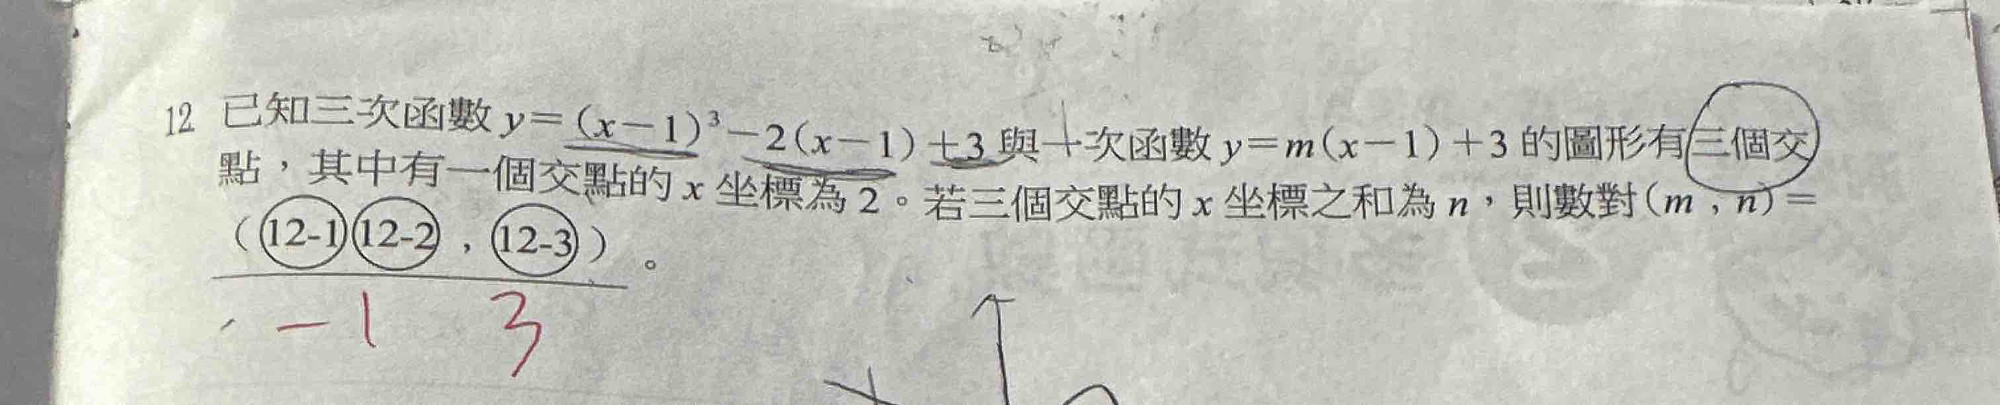 12 已知三次函數 y=(x-1)³-2(x-1)+3 與一次函數 y=m(x-1)+3 的圖形有三個交
點，其中有一個交點的 x 坐標為 2。若三個交點的 x 坐標之和為 n，則數對(m，n)=
(12-1 12-2，12-3)。
-1 3